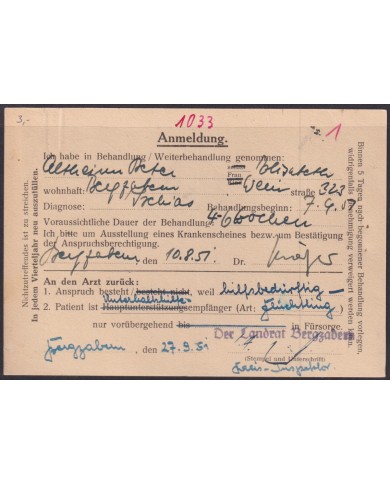 3,-
1033
1
Anmeldung.
Ich habe in Behandlung / Weiterbehandlung genommen:
Frau Elisabeth
wohnhaft: Bergzabern Wein straße 323
Diagnose: Ischias Behandlungsbeginn: 7.9.
Voraussichtliche Dauer der Behandlung: 4-6 Wochen
Ich bitte um Ausstellung eines Krankenscheines bezw. um Bestätigung
der Anspruchsberechtigung.
Bergzabern den 10.8.51. Dr.
An den Arzt zurück:
1. Anspruch besteht nicht, weil hilfsbedürftig –
Unterhaltshilfe-
2. Patient ist Hauptunterstützungsempfänger (Art: Flüchtling)
nur vorübergehend bis in Fürsorge.
Der Landrat Bergzabern
Bergzabern, den 27.9.51
(Stempel und Unterschrift)
Kreis-Inspektor
Nichtzutreffendes ist zu streichen.
In jedem Vierteljahr neu auszufüllen.
Binnen 5 Tagen nach begonnener Behandlung vorlegen,
widrigenfalls Genehmigung verweigert werden kann.